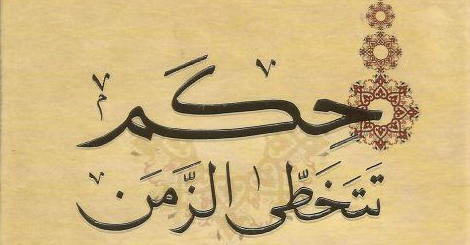 حِكَم
تتَخَطّى الزَّمَن